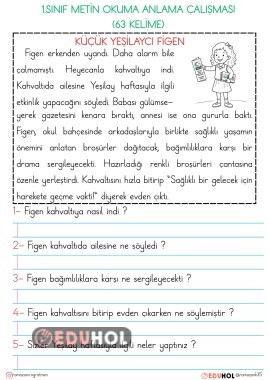 1.SINIF METİN OKUMA ANLAMA ÇALIŞMASI
(63 KELİME)
KÜÇÜK YEŞİLAYCI FİGEN
Figen erkenden uyandı. Daha alarm bile
çalmamıştı. Heyecanla kahvaltıya indi.
Kahvaltıda ailesine Yeşilay haftasıyla ilgili
etkinlik yapacağını söyledi. Babası gülümse-
yerek gazetesini kenara bıraktı, annesi ise ona gururla baktı.
Figen, okul bahçesinde arkadaşlarıyla birlikte sağlıklı yaşamın
önemini anlatan broşürler dağıtacak, bağımlılıklara karşı bir
drama sergileyecekti. Hazırladığı renkli broşürleri çantasına
özenle yerleştirdi. Kahvaltısını hızla bitirip "Sağlıklı bir gelecek için
harekete geçme vakti!" diyerek evden çıktı.
1- Figen kahvaltıya nasıl indi ?
2- Figen kahvaltıda ailesine ne söyledi ?
3- Figen bağımlılıklara karşı ne sergileyecekti ?
4- Figen kahvaltısını bitirip evden çıkarken ne söylemiştir ?
EDUHOL
5- Sizler Yeşilay haftasıyla ilgili neler yaptınız ?
EDUHOL